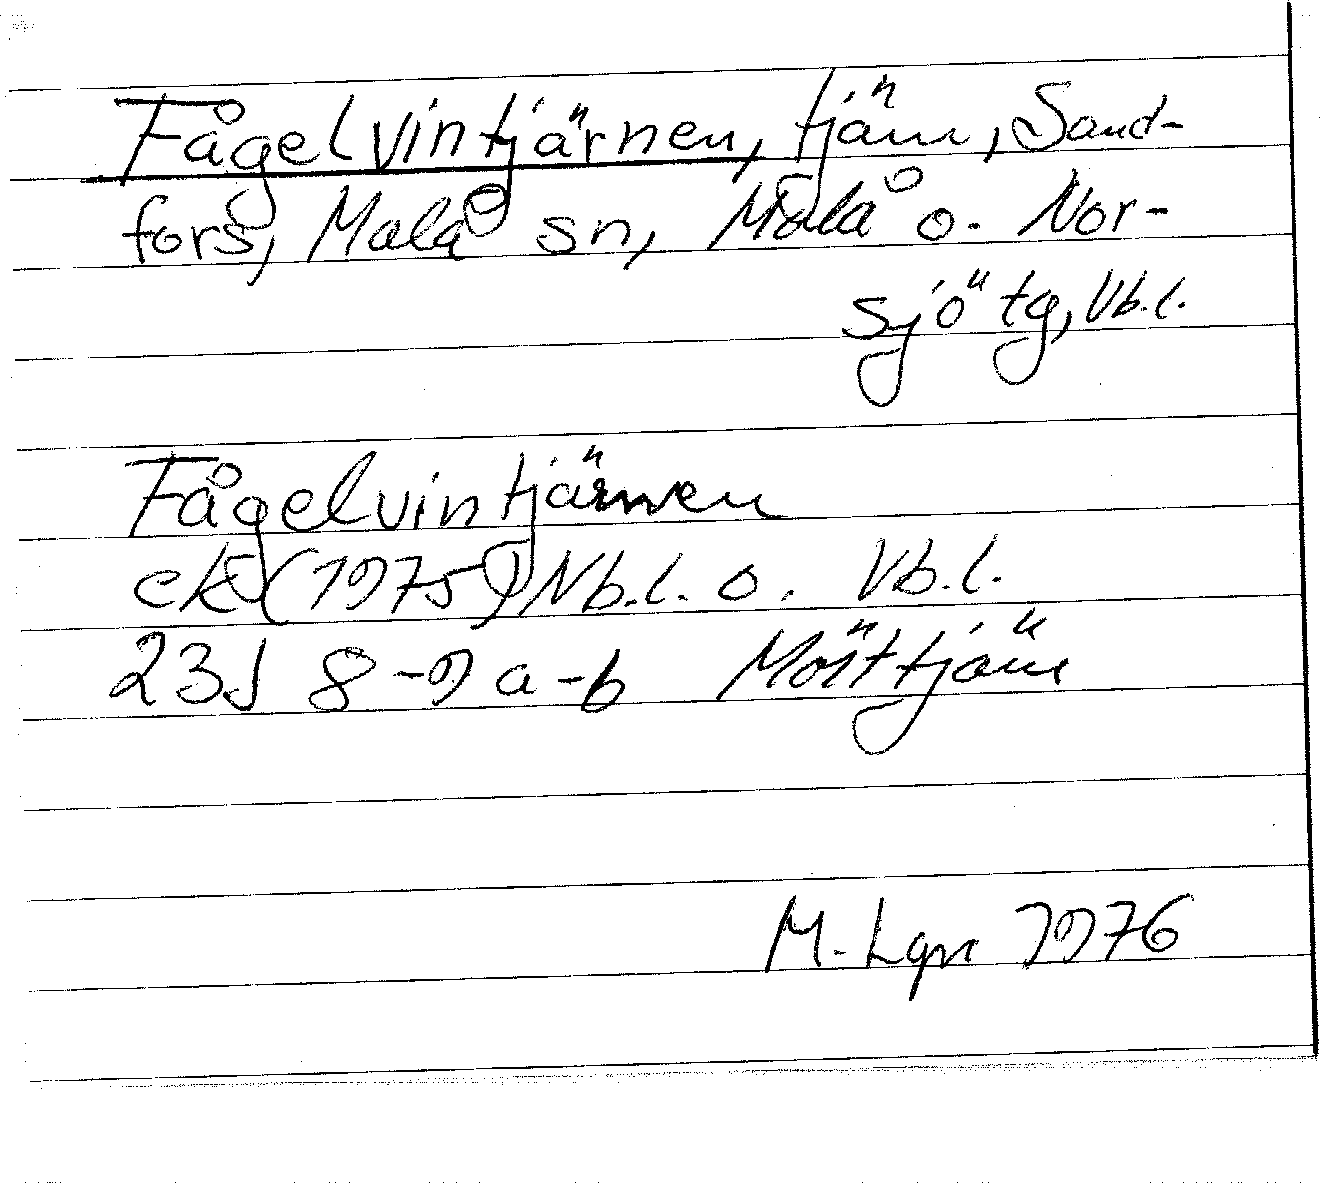 Fågelvintjärnen, tjärn, Sand-
fors, Malå sn, Malå o. Nor-
sjö tg, Vb.l.
Fågelvintjärnen
ek (1975) Nb.l. o. Vb.l.
23J 8-9 a-b Mösttjärn
M. Lgn 1976